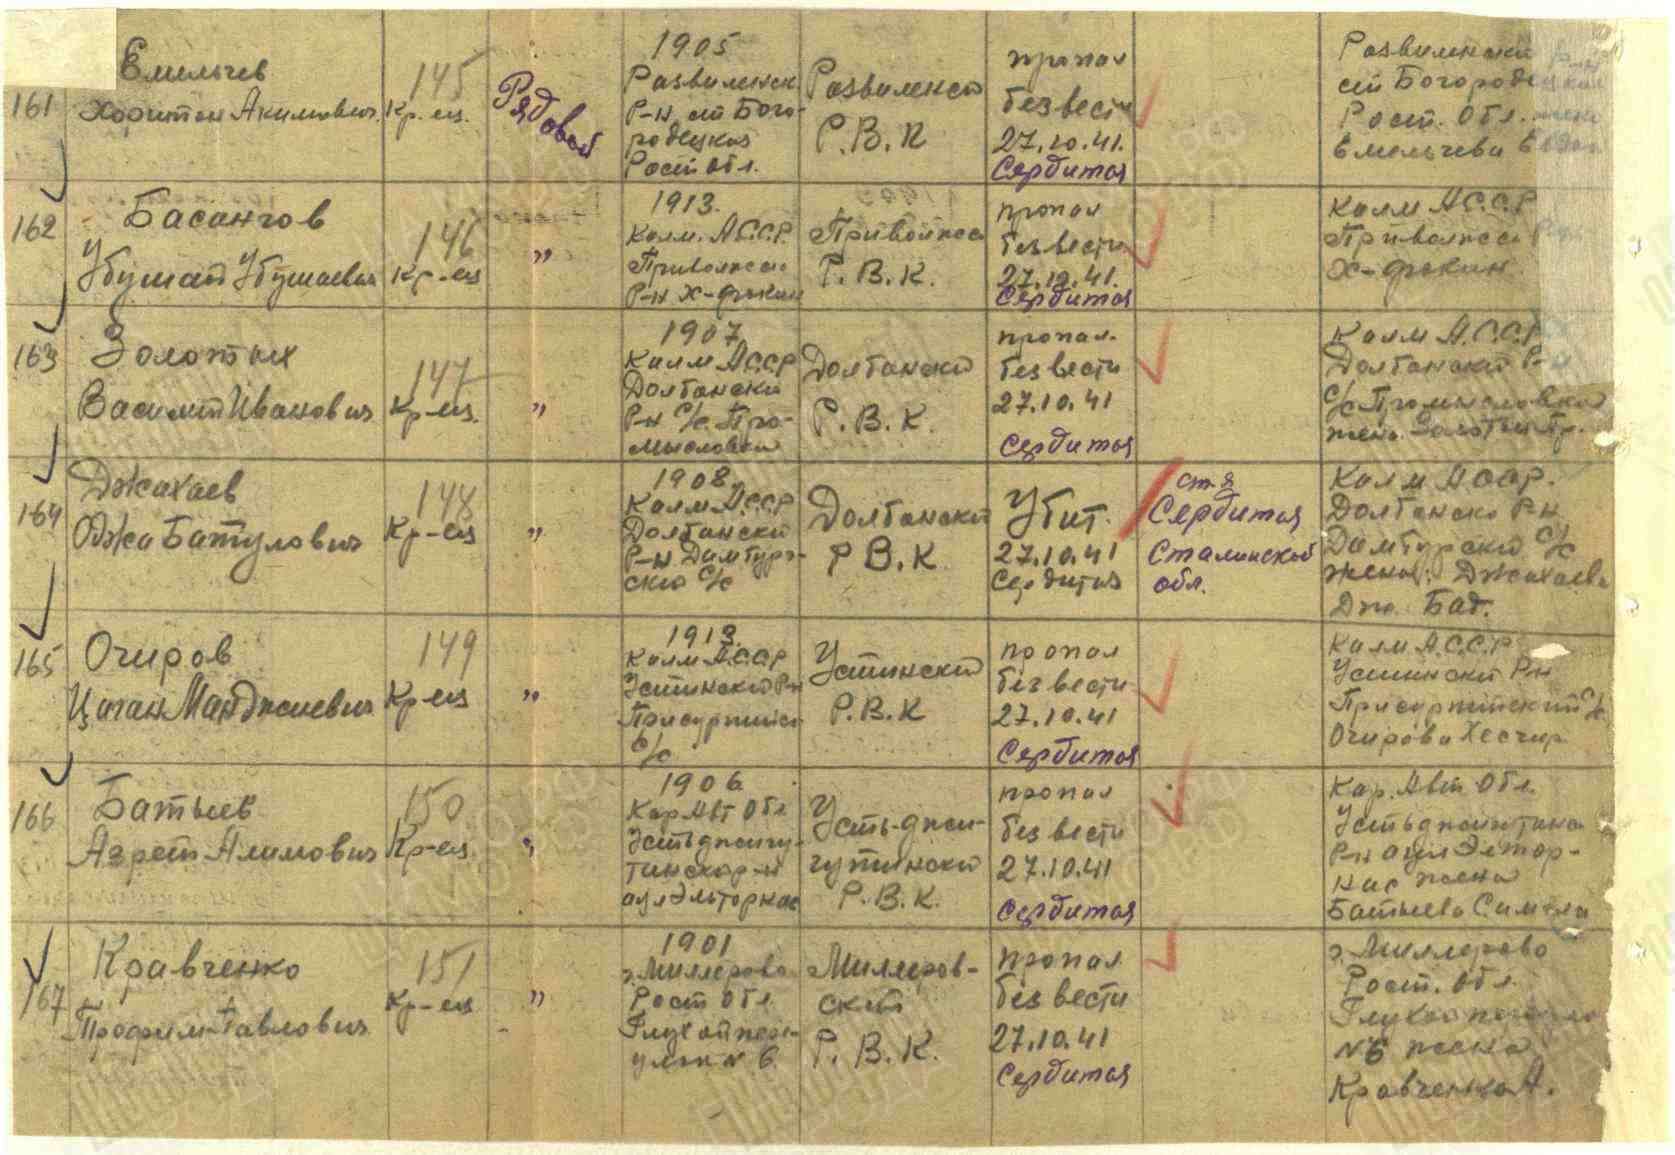 161
Емельчев
Харитон Акимович
145
Кр-ец.
Рядовой
1905
Развиленск
Р-н ст Бого-
родецкая
Рост обл.
Развиленск
Р.В.К
пропал
без вести
27.10.41.
Сердитая
Развиленски Р-н
ст Богородецкая
Рост. Обл. жена
Емельчева
162
Басангов
Убушат Убушаевич
146
Кр-ец
"
1913.
Калм. А.С.С.Р.
Приволжск
Р-н х-фокин
Приволжск
Р.В.К.
пропал
без вести
27.10.41.
Сердитая
Калм А.С.С.Р
Приволжск
х-фокин
163
Золотых
Василий Иванович
147
Кр-ец.
"
1907
Калм А.С.С.Р
Долбански
Р-н С/с. Про-
мысловка
Долбански
Р.В.К.
пропал.
без вести
27.10.41
Сердитая
Калм А.С.С.Р
Долбански Р-н
С/с Промысловка
жена. Золотых Пр.
164
Джахаев
Оджа Батулович
148
Кр-ец
"
1908.
Калм А.С.С.Р
Долбански
Р-н Дамтурс-
ски С/с
Долбански
Р В.К.
Убит.
27.10.41
Сердитая
ст-я
Сердитая
Сталинской
обл.
Калм АССР.
Долбанск Р-н
Дамтурски С/с
жена: Джахаева
Дж. Бад.
165
Очиров
Цаган Манджиевич
149
Кр-ец
"
1913.
Калм А.С.С.Р
Устински Р-н
С/с
Устински
Р.В.К
пропал
без вести
27.10.41
Сердитая
Калм А.С.С.Р
Устински Р-н
С/с
Очирова
166
Батчев
Азрет Алимович
150
Кр-ец
"
1906.
Кар Авт Обл
Устьджегу-
тинскар-н
аул Эльторкас
Усть-дже-
гутински
Р.В.К.
пропал
без вести
27.10.41
Сердитая
Кар. Авт Обл.
Устьджегутинск
Р-н аул Эльтор-
кас жена
Батчева
167
Кравченко
Трофим Павлович
151
Кр-ец
"
1901
г. Миллерово
Рост обл.
Глухой пере-
улок N 6.
Миллеров-
ский
Р.В.К.
пропал
без вести
27.10.41
Сердитая
г. Миллерово
Рост. обл.
Глухой
N6 жена
Кравченко А.